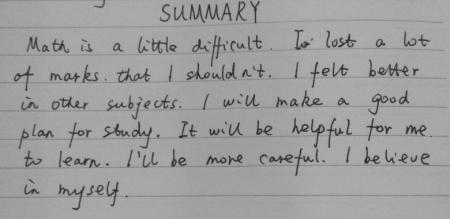 SUMMARY
Math is a little difficult. I lost a lot
of marks. that I shouldn't. I felt better
in other subjects. I will make a good
plan for study. It will be helpful for me
to learn. I'll be more careful. I believe
in myself.